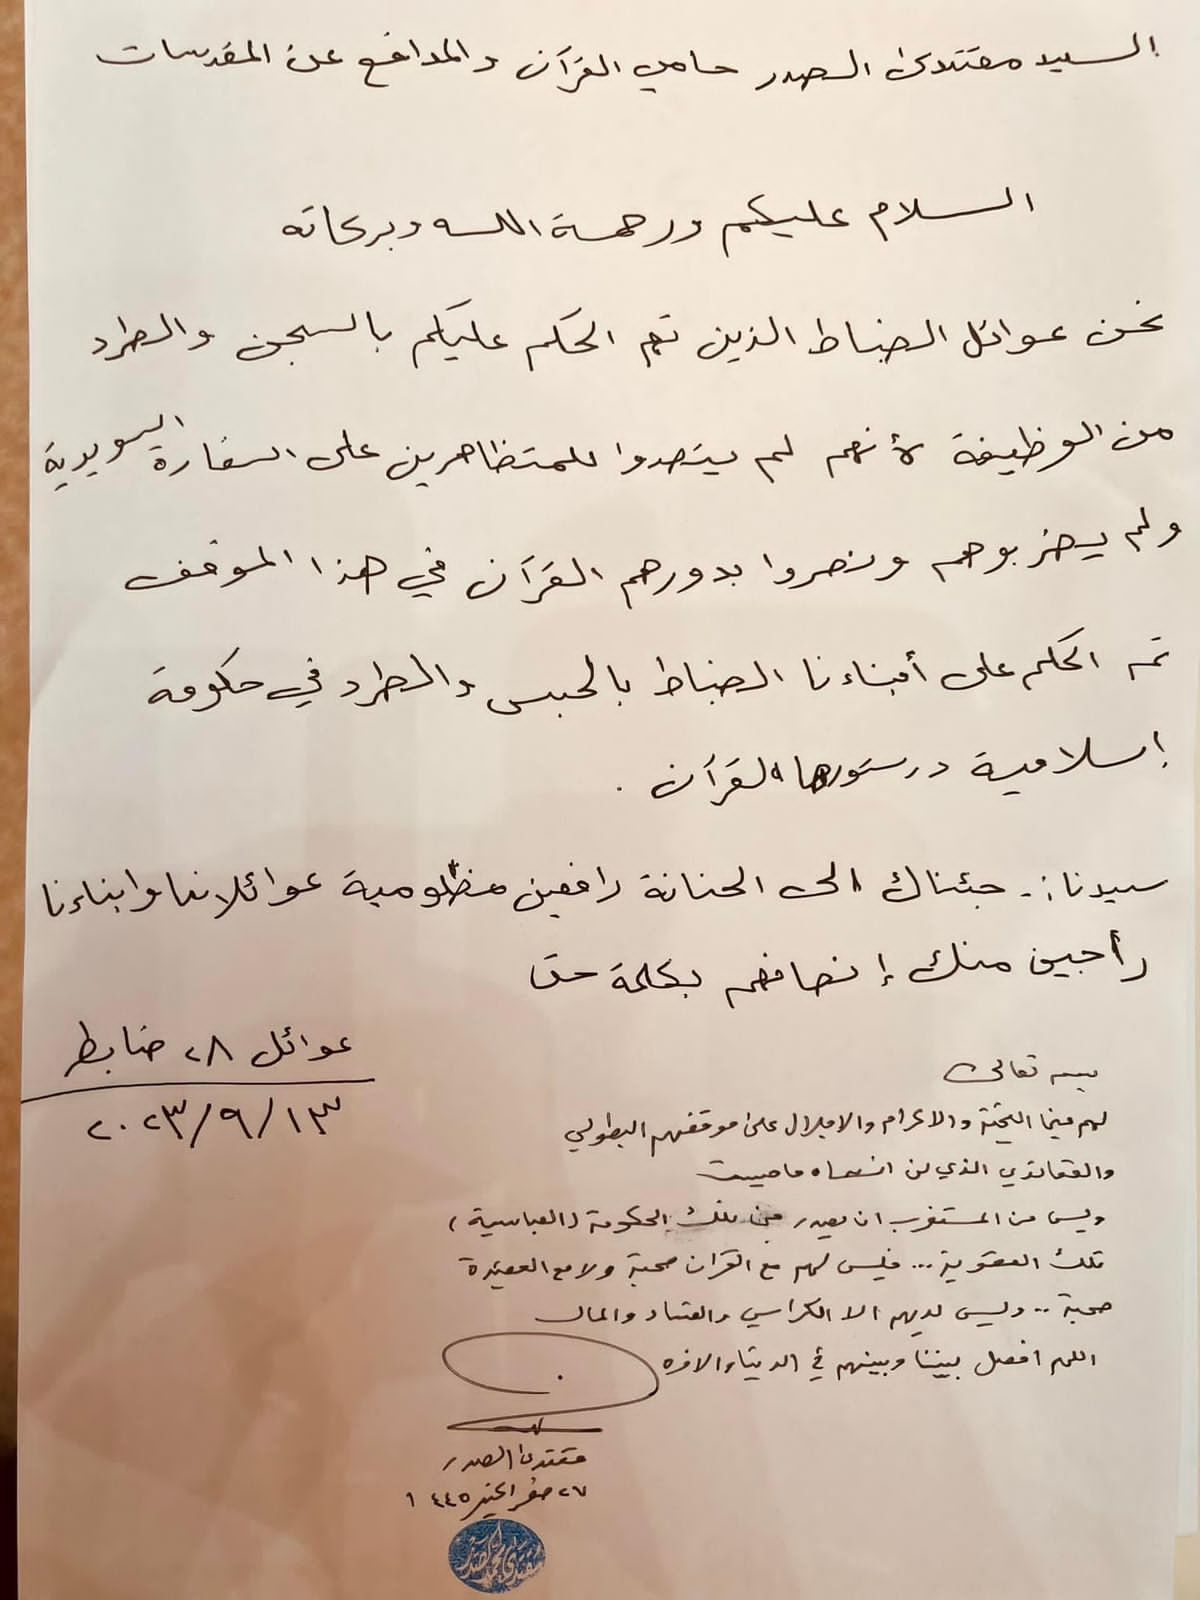 السيد مقتدى الصدر حامي القرآن والمدافع عن المقدسات
السلام عليكم ورحمة الله وبركاته
نحن عوائل الضباط الذين تم الحكم عليكم بالسجن والطرد
من الوظيفة لأنهم لم يتصدوا للمتظاهرين على السفارة السويدية
ولم يضربوهم ونصروا بدورهم القرآن في هذا الموقف
تم الحكم على أبناءنا الضباط بالحبس والطرد في حكومة
إسلامية دستورها القرآن .
سيدنا :. جئناك الى الحنانة رافعين مظلومية عوائلانا وابناءنا
راجين منك إنصافهم بكلمة حق
عوائل ٢٨ ضابط
٢٠٢٣/٩/١٣
بسمه تعالى
لهم منا التحية والاكرام والاجلال على موقفهم البطولي
والعقائدي الذي لن انساه ما حييت
وليس من المستغرب ان يصدر من تلك الحكومة (العباسية)
تلك العقوبة ... فليس لهم مع القران صحبة ولا مع العقيدة
صحبة .. وليس لديهم الا الكراسي والفساد والمال
اللهم افصل بيننا وبينهم في الدنيا والاخرة
مقتدى الصدر
٢٧ صفر الخير ١٤٤٥
مقتدى محمد الصدر